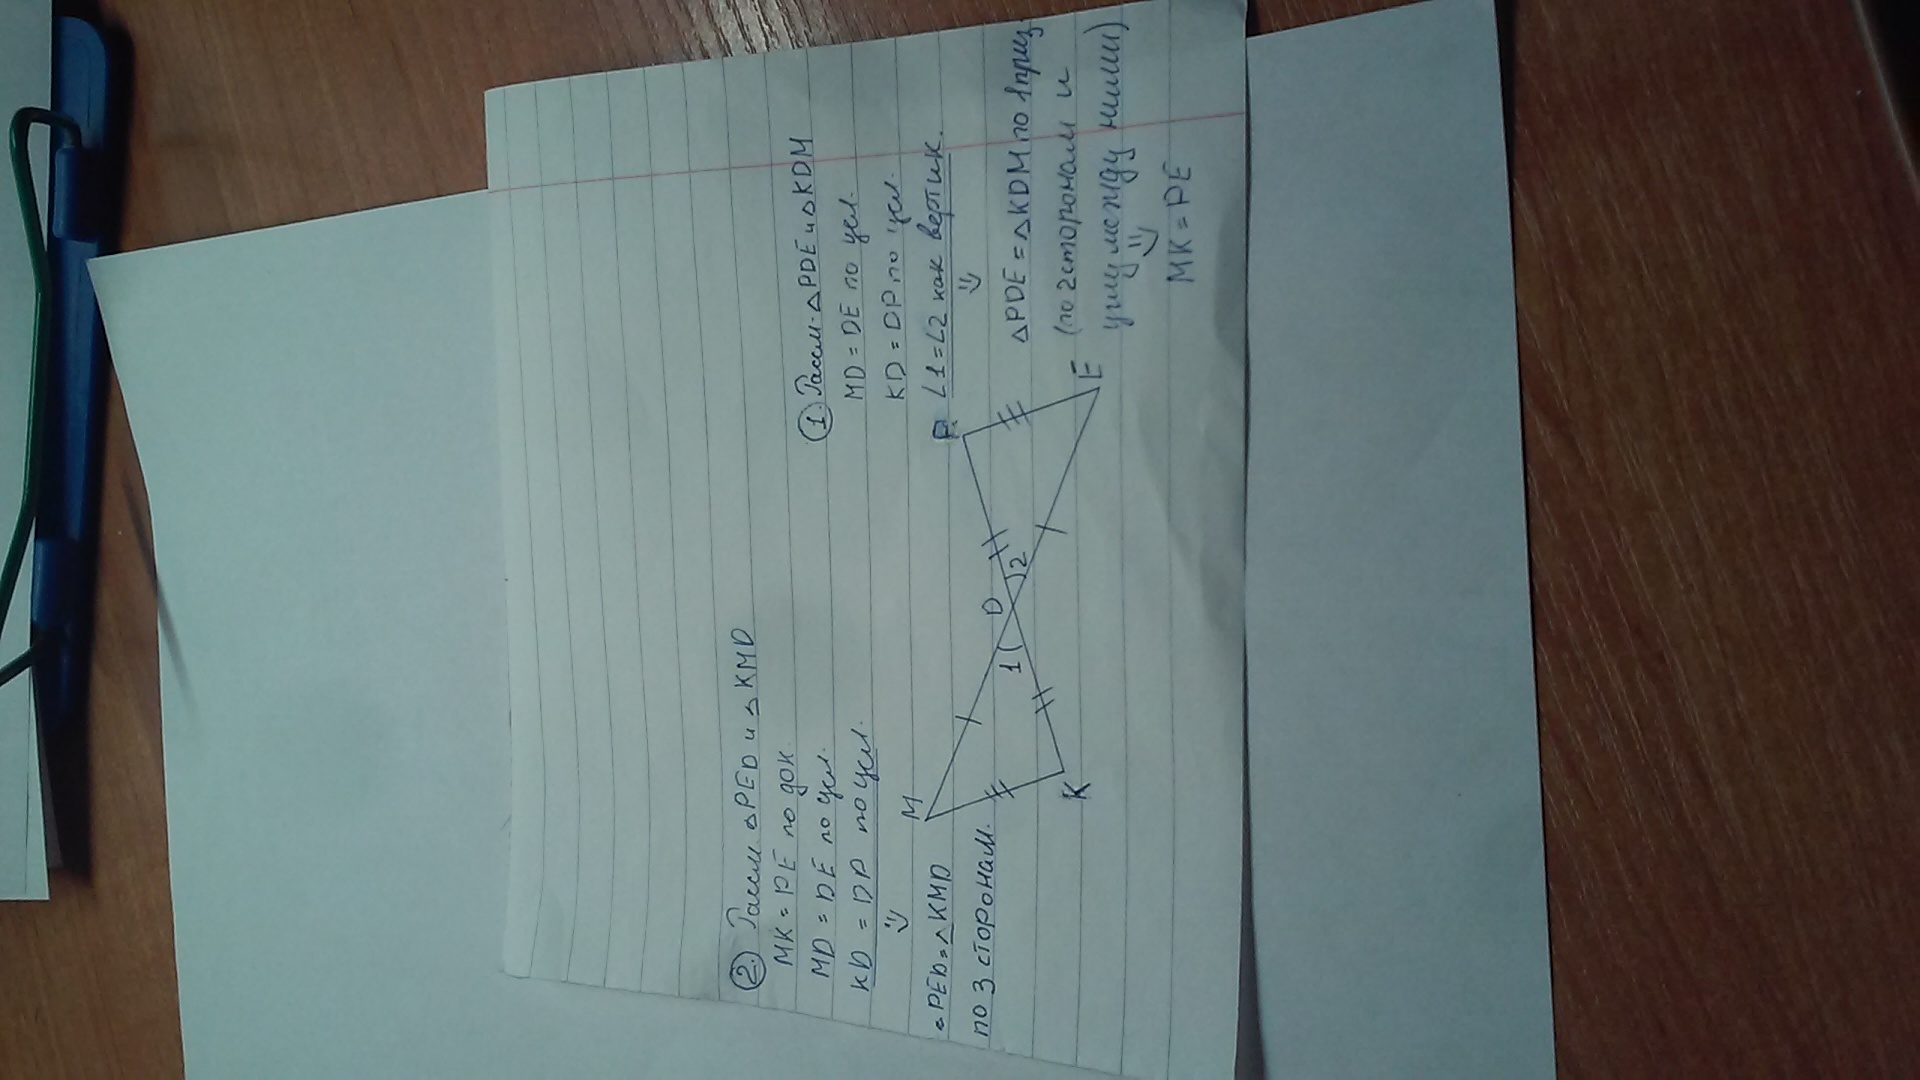 ② Рассм △PED и △KMD
MK = PE по док.
MD = DE по усл.
KD = DP по усл.
△PED = △KMD
по 3 сторонам.
① Рассм. △PDE и △KDM
MD = DE по усл.
KD = DP по усл.
∠1 = ∠2 как вертик.
△PDE = △KDM по 1 приз
(по 2 сторонам и
углу между ними)
MK = PE
M
K
D
1
2
P
E